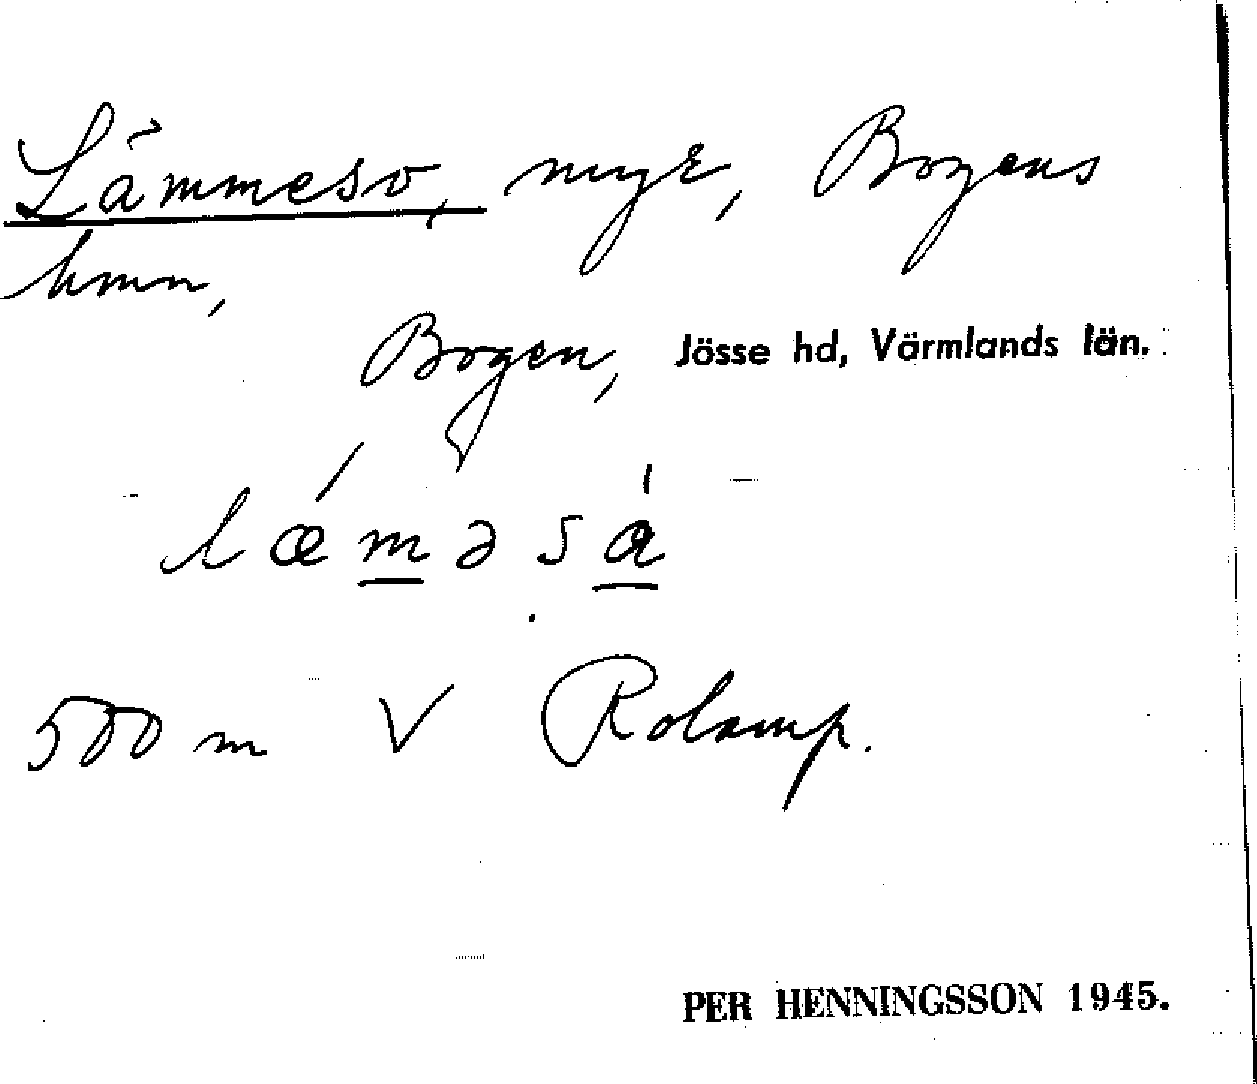 Lämmeso, myr, Bogens
hmn,
Bogen, Jösse hd, Värmlands län.
læ´məså
500 m V Rolamp.
PER HENNINGSSON 1945.